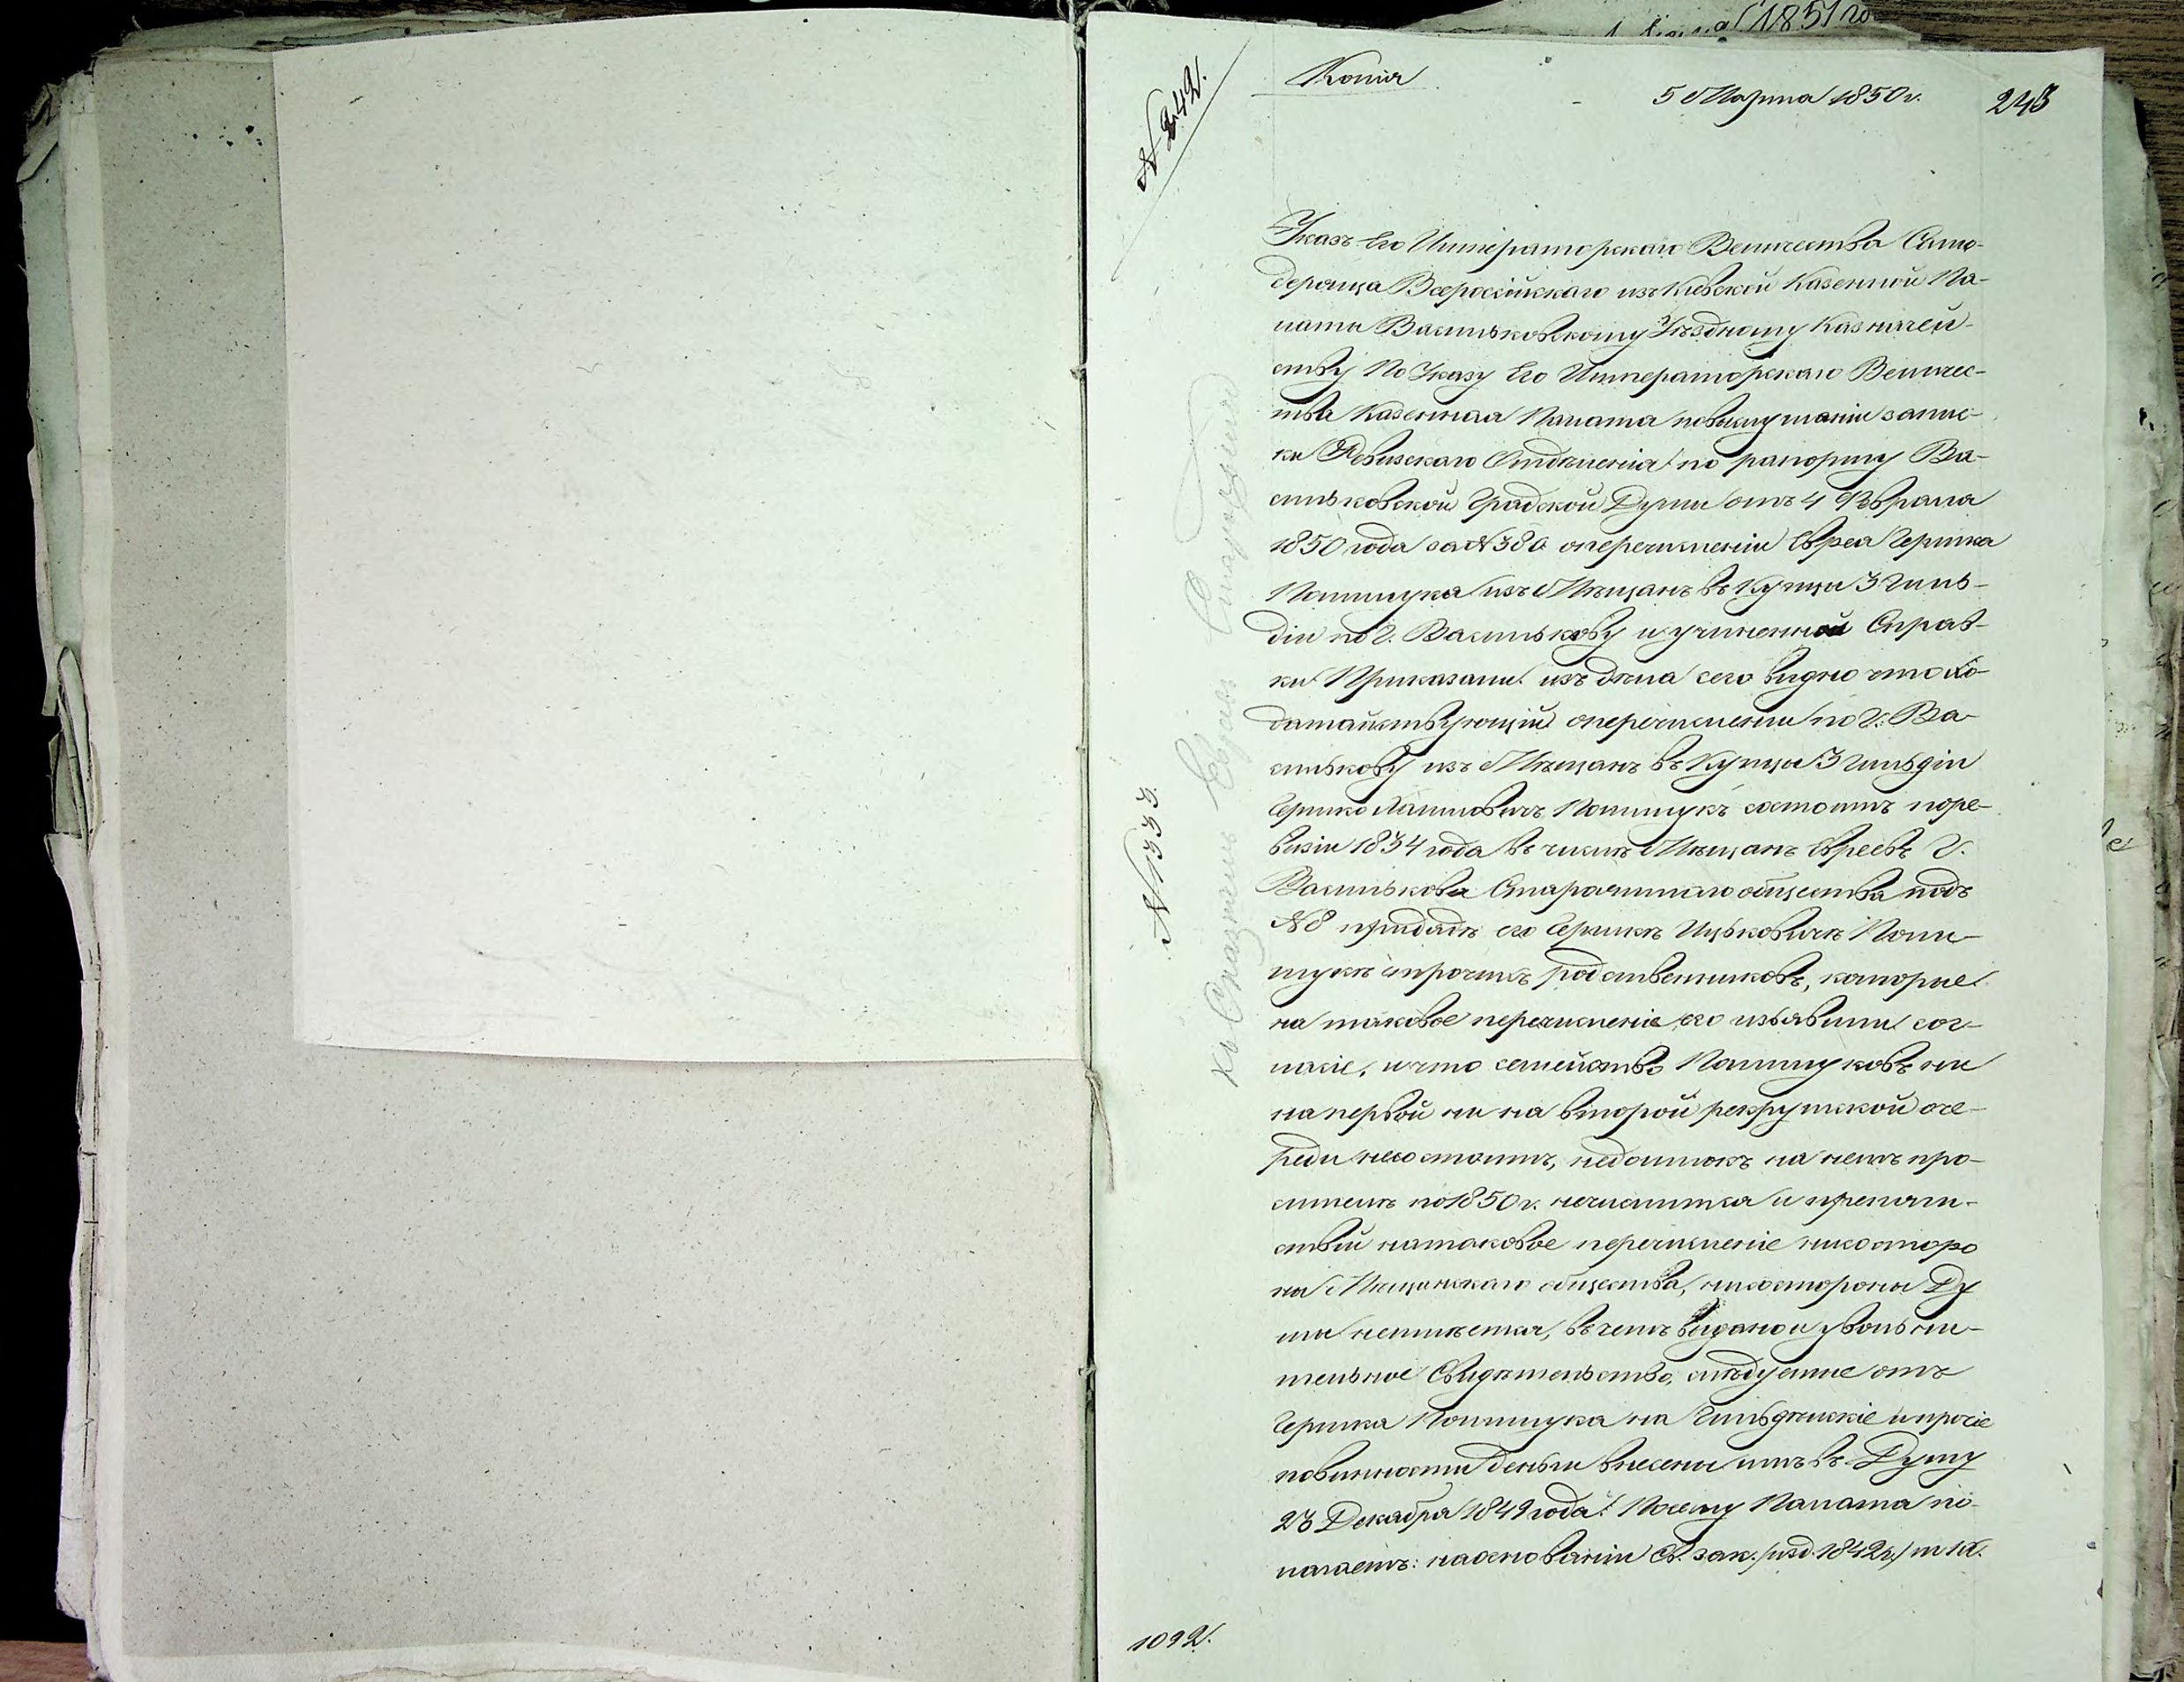 1851 го
№ 242.
Копія
5 Марта 1850 г.
243
Указъ Его Императорскаго Величества Само-
держца Всероссійскаго изъ Кіевской Казенной Па-
латы Васильковскому Уѣздному Казначей-
ству По Указу Его Императорскаго Величес-
тва Казенная Палата по выслушаніи запис-
ки Ревизскаго Отдѣленія по рапорту Ва-
сильковской Градской Думы отъ 4 Февраля
1850 года за № 380 о перечисленіи Еврея Гершка
Полищука изъ Мѣщанъ въ Купцы 3 гиль-
діи по г. Василькову и учиненной Справ-
ки Приказали: изъ дѣла сего видно что хо-
датайствующій о перечисленіи по г. Ва-
силькову изъ Мѣщанъ въ Купцы 3 гильдіи
Гершко Полищукъ состоитъ по ре-
визіи 1834 года въ числѣ Мѣщанъ Евреевъ г.
Василькова Старожилаго общества подъ
№ 8 при дядѣ его Гершкѣ Ицьковичѣ Поли-
щукѣ и прочихъ родственниковъ, которые
на таковое перечисленіе его изъявили сог-
ласіе, и что семейство Полищуковъ ни
на первой ни на второй рекрутской оче-
реди не состоитъ, недоимокъ на немъ про-
симемъ по 1850 г. не числится и препят-
ствій на таковое перечисленіе ни со сторо
ны Мѣщанскаго общества, ни со стороны Ду
мы не имѣется, въ чемъ выдано и увольни-
тельное Свидѣтельство, слѣдуемые отъ
Гершка Полищука на Гильдѣйскіе и прочіе
повинности деньги внесены имъ въ Думу
23 Декабря 1849 года: Посему Палата по-
лагаетъ: на основаніи Св. зак. (изд. 1842 г.) т. IX.
№ 1333.
Къ Сказкамъ Евреевъ
1092.